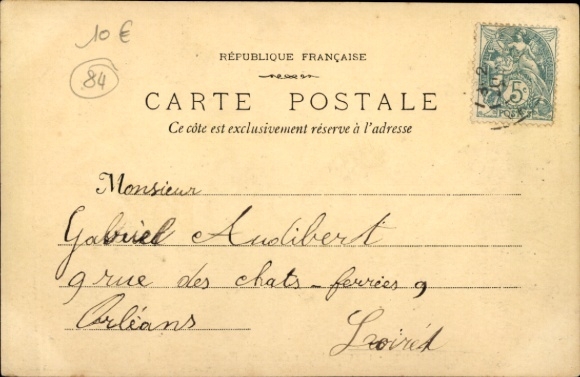 10 €
84
RÉPUBLIQUE FRANÇAISE
CARTE POSTALE
Ce côte est exclusivement réserve à l'adresse
5c
Monsieur
Gabriel Audibert
9 rue des chats-ferrées 9
Orléans Loiret